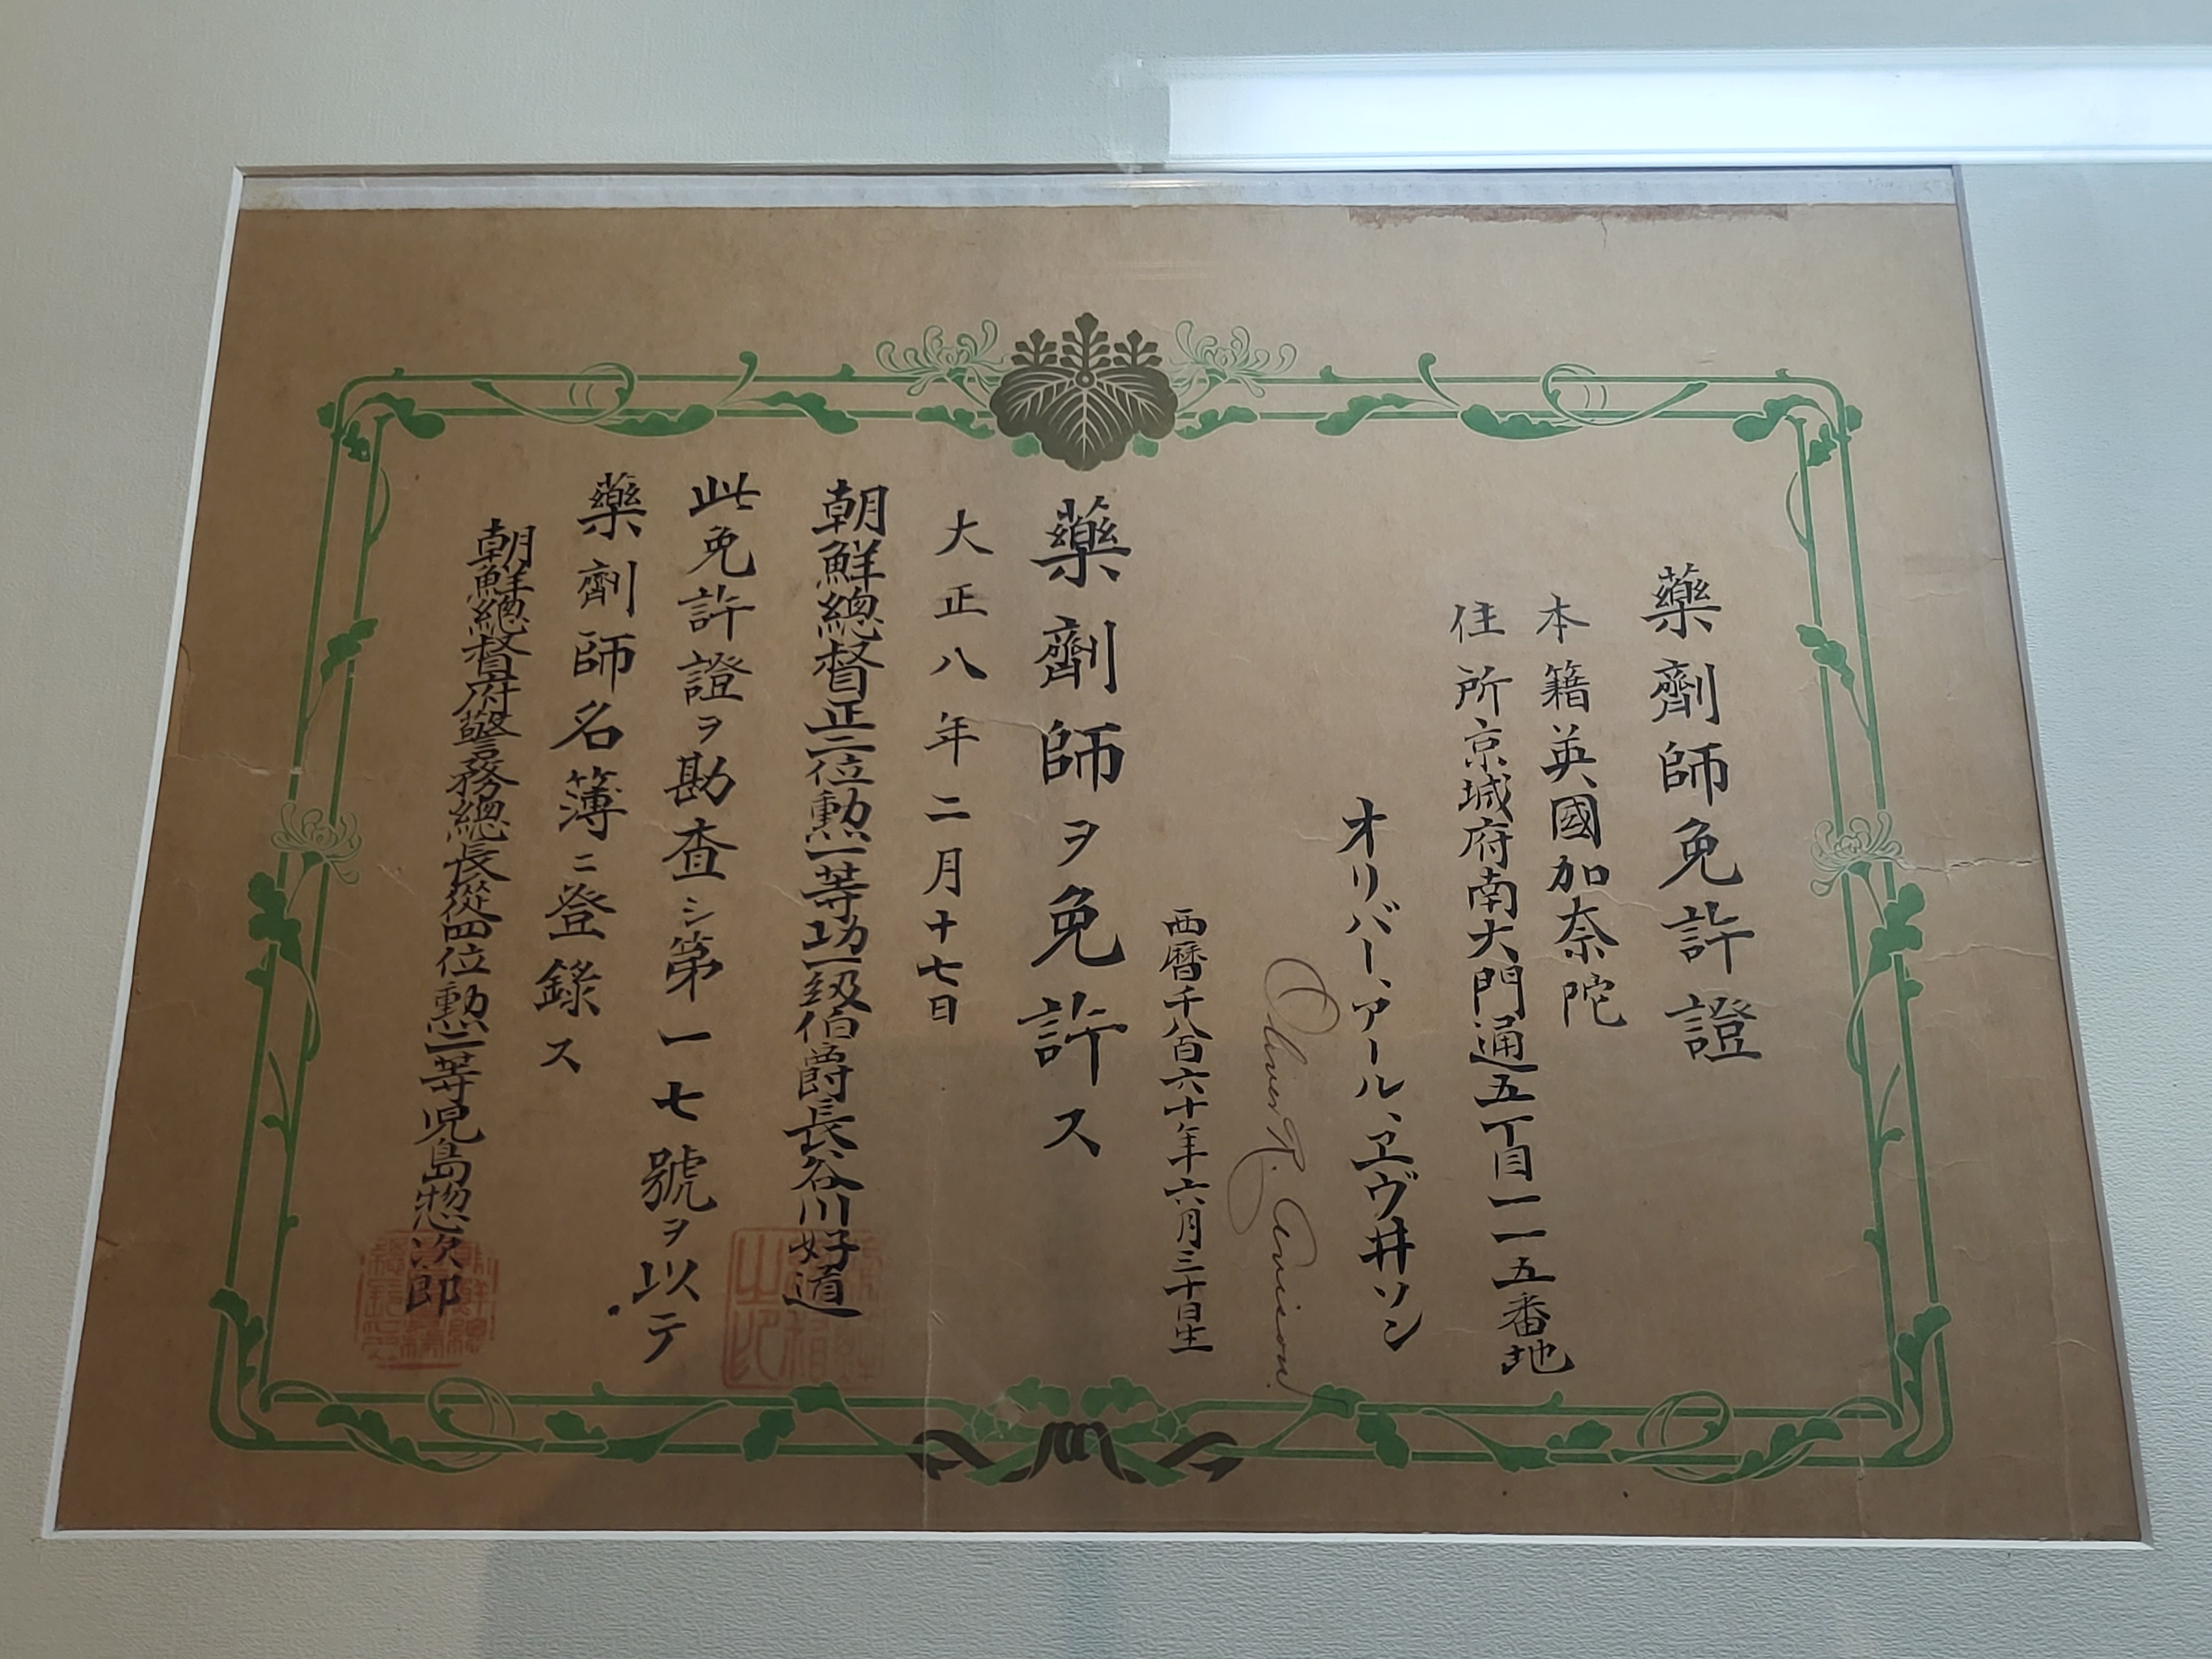 藥劑師免許證
本籍英國加奈陀
住所京城府南大門通五丁目一一五番地
オリバー、アール、ヱヴ井ソン
Oliver R. Avison
西暦千八百六十年六月三十日生
藥劑師ヲ免許ス
大正八年二月十七日
朝鮮總督正二位勲一等功一級伯爵長谷川好道
此免許證ヲ勘查シ第一七號ヲ以テ
藥劑師名簿ニ登錄ス
朝鮮總督府警務總長從四位勲二等児島惣次郎